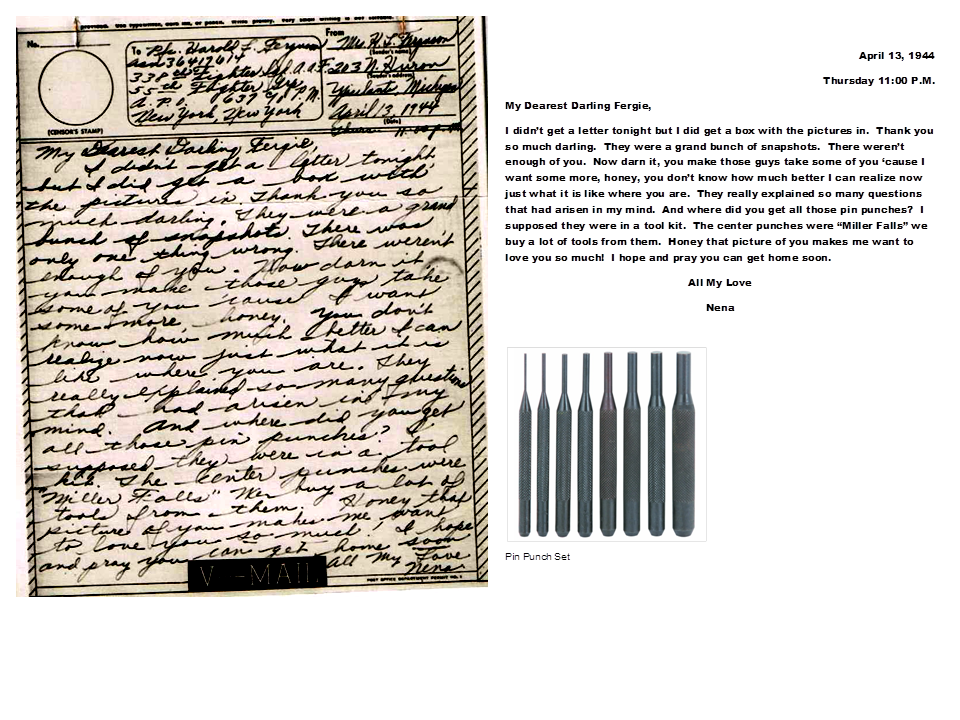 provided. Use typewriter, dark ink, or pencil. Write plainly. Very small writing is not suitable.
No.
(CENSOR'S STAMP)
To Pfc. Harold F. Ferguson
asn 36417614
338th Fighter Sqd. A.A.F.
55th Fighter Gp.
A.P.O. 637 c/o P.M.
New York, New York
From
Mrs. H. F. Ferguson
(Sender's name)
203 N. Huron
(Sender's address)
Ypsilanti, Michigan
April 13, 1944
(Date)
Thurs. 11:00 P.M.
My Dearest Darling Fergie,
I didn't get a letter tonight
but I did get a box with
the pictures in. Thank you so
much darling. They were a grand
bunch of snapshots. There was
only one thing wrong. There weren't
enough of you. Now darn it
you make those guys take
some of you 'cause I want
some more, honey, you don't
know how much better I can
realize now just what it is
like where you are. They
really explained so many questions
that had arisen in my
mind. And where did you get
all those pin punches? I
supposed they were in a tool
kit. The center punches were
"Miller Falls" We buy a lot of
tools from them. Honey that
picture of you makes me want
to love you so much! I hope
and pray you can get home soon
All My Love
Nena
V-MAIL
POST OFFICE DEPARTMENT PERMIT NO.
April 13, 1944
Thursday 11:00 P.M.
My Dearest Darling Fergie,
I didn't get a letter tonight but I did get a box with the pictures in.  Thank you
so much darling.  They were a grand bunch of snapshots.  There weren't
enough of you.  Now darn it, you make those guys take some of you 'cause I
want some more, honey, you don't know how much better I can realize now
just what it is like where you are.  They really explained so many questions
that had arisen in my mind.  And where did you get all those pin punches?  I
supposed they were in a tool kit.  The center punches were "Miller Falls" we
buy a lot of tools from them.  Honey that picture of you makes me want to
love you so much!  I hope and pray you can get home soon.
All My Love
Nena
Pin Punch Set